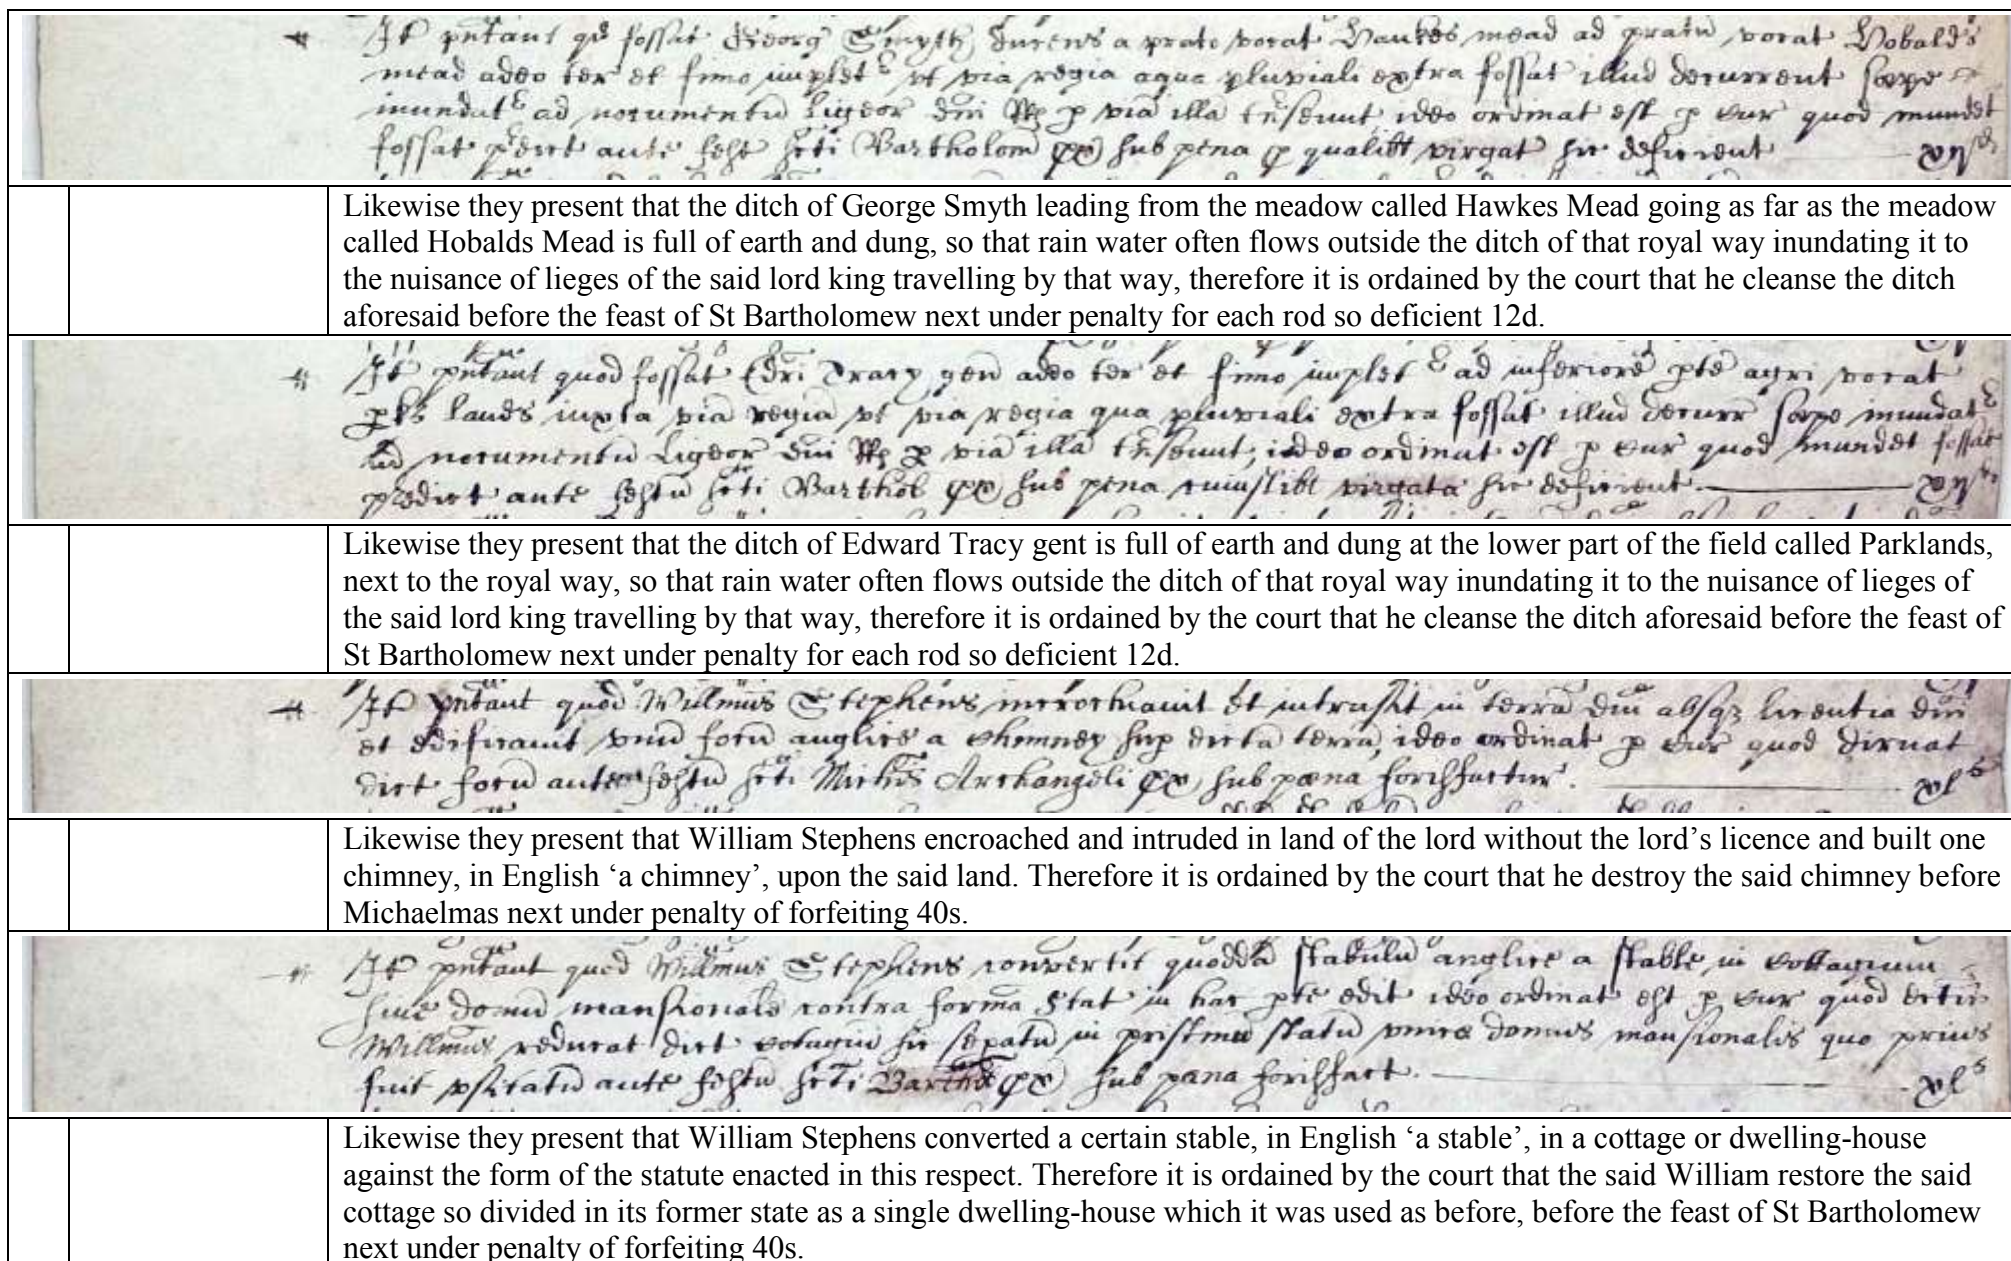 It pntant qd fossat Georg Smyth ducens a prato vocat Haukes mead ad pratu vocat Hobalds
mead adeo ter et fimo implet vt via regia aqua pluviali extra fossat illud decurrent sepe
inundat ad nocumentu Ligeor dni Rs p via illa trseunt ideo ordinat est p cur quod mundet
fossat pdict ante fest scti Bartholom px sub pena p qualibt virgat sic deficient xijd
Likewise they present that the ditch of George Smyth leading from the meadow called Hawkes Mead going as far as the meadow
called Hobalds Mead is full of earth and dung, so that rain water often flows outside the ditch of that royal way inundating it to
the nuisance of lieges of the said lord king travelling by that way, therefore it is ordained by the court that he cleanse the ditch
aforesaid before the feast of St Bartholomew next under penalty for each rod so deficient 12d.
It pntant quod fossat Edri Tracy gen adeo ter et fimo implet ad inferiore pte agri vocat
lands iuxta via regia vt via regia qua pluviali extra fossat illud decurr sepe inundat
ad nocumentu Ligeor dni Rs p via illa trseunt, ideo ordinat est p cur quod mundet fossat
predict ante festu scti Barthol px sub pena cuiuslibt virgata sic deficient xijd
Likewise they present that the ditch of Edward Tracy gent is full of earth and dung at the lower part of the field called Parklands,
next to the royal way, so that rain water often flows outside the ditch of that royal way inundating it to the nuisance of lieges of
the said lord king travelling by that way, therefore it is ordained by the court that he cleanse the ditch aforesaid before the feast of
St Bartholomew next under penalty for each rod so deficient 12d.
It pntant quod Willmus Stephens incrochiauit et intrusit in terra dni absqz licentia dni
et edificauit vnu focu anglice a chimney sup dicta terra, ideo ordinat p cur quod diruat
dict focu ante festu scti Michis Archangeli px sub pœna forisfactur. xls
Likewise they present that William Stephens encroached and intruded in land of the lord without the lord’s licence and built one
chimney, in English ‘a chimney’, upon the said land. Therefore it is ordained by the court that he destroy the said chimney before
Michaelmas next under penalty of forfeiting 40s.
It pntant quod Willmus Stephens convertit quodda stabulu anglice a stable in cottagium
siue domu mansionale contra forma stat in hac pte edit ideo ordinat est p cur quod dictus
Willmus reducat dict cotagiu sic sepatu in pristinu statu vnius domus mansionalis quo prius
fuit vsitatu ante festu scti Barthol px sub pæna forisfact. xls
Likewise they present that William Stephens converted a certain stable, in English ‘a stable’, in a cottage or dwelling-house
against the form of the statute enacted in this respect. Therefore it is ordained by the court that the said William restore the said
cottage so divided in its former state as a single dwelling-house which it was used as before, before the feast of St Bartholomew
next under penalty of forfeiting 40s.